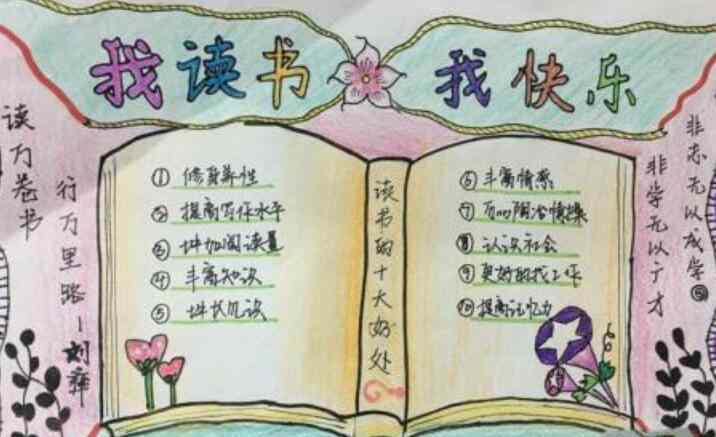 我读书 我快乐
读万卷书
行万里路—刘彝
读书的十大好处
① 修身养性
② 提高写作水平
③ 增加阅读量
④ 丰富知识
⑤ 增长见识
⑥ 丰富情感
⑦ 可以陶冶情操
⑧ 认识社会
⑨ 更好的找工作
⑩ 提高记忆力
非学无以广才
非志无以成学